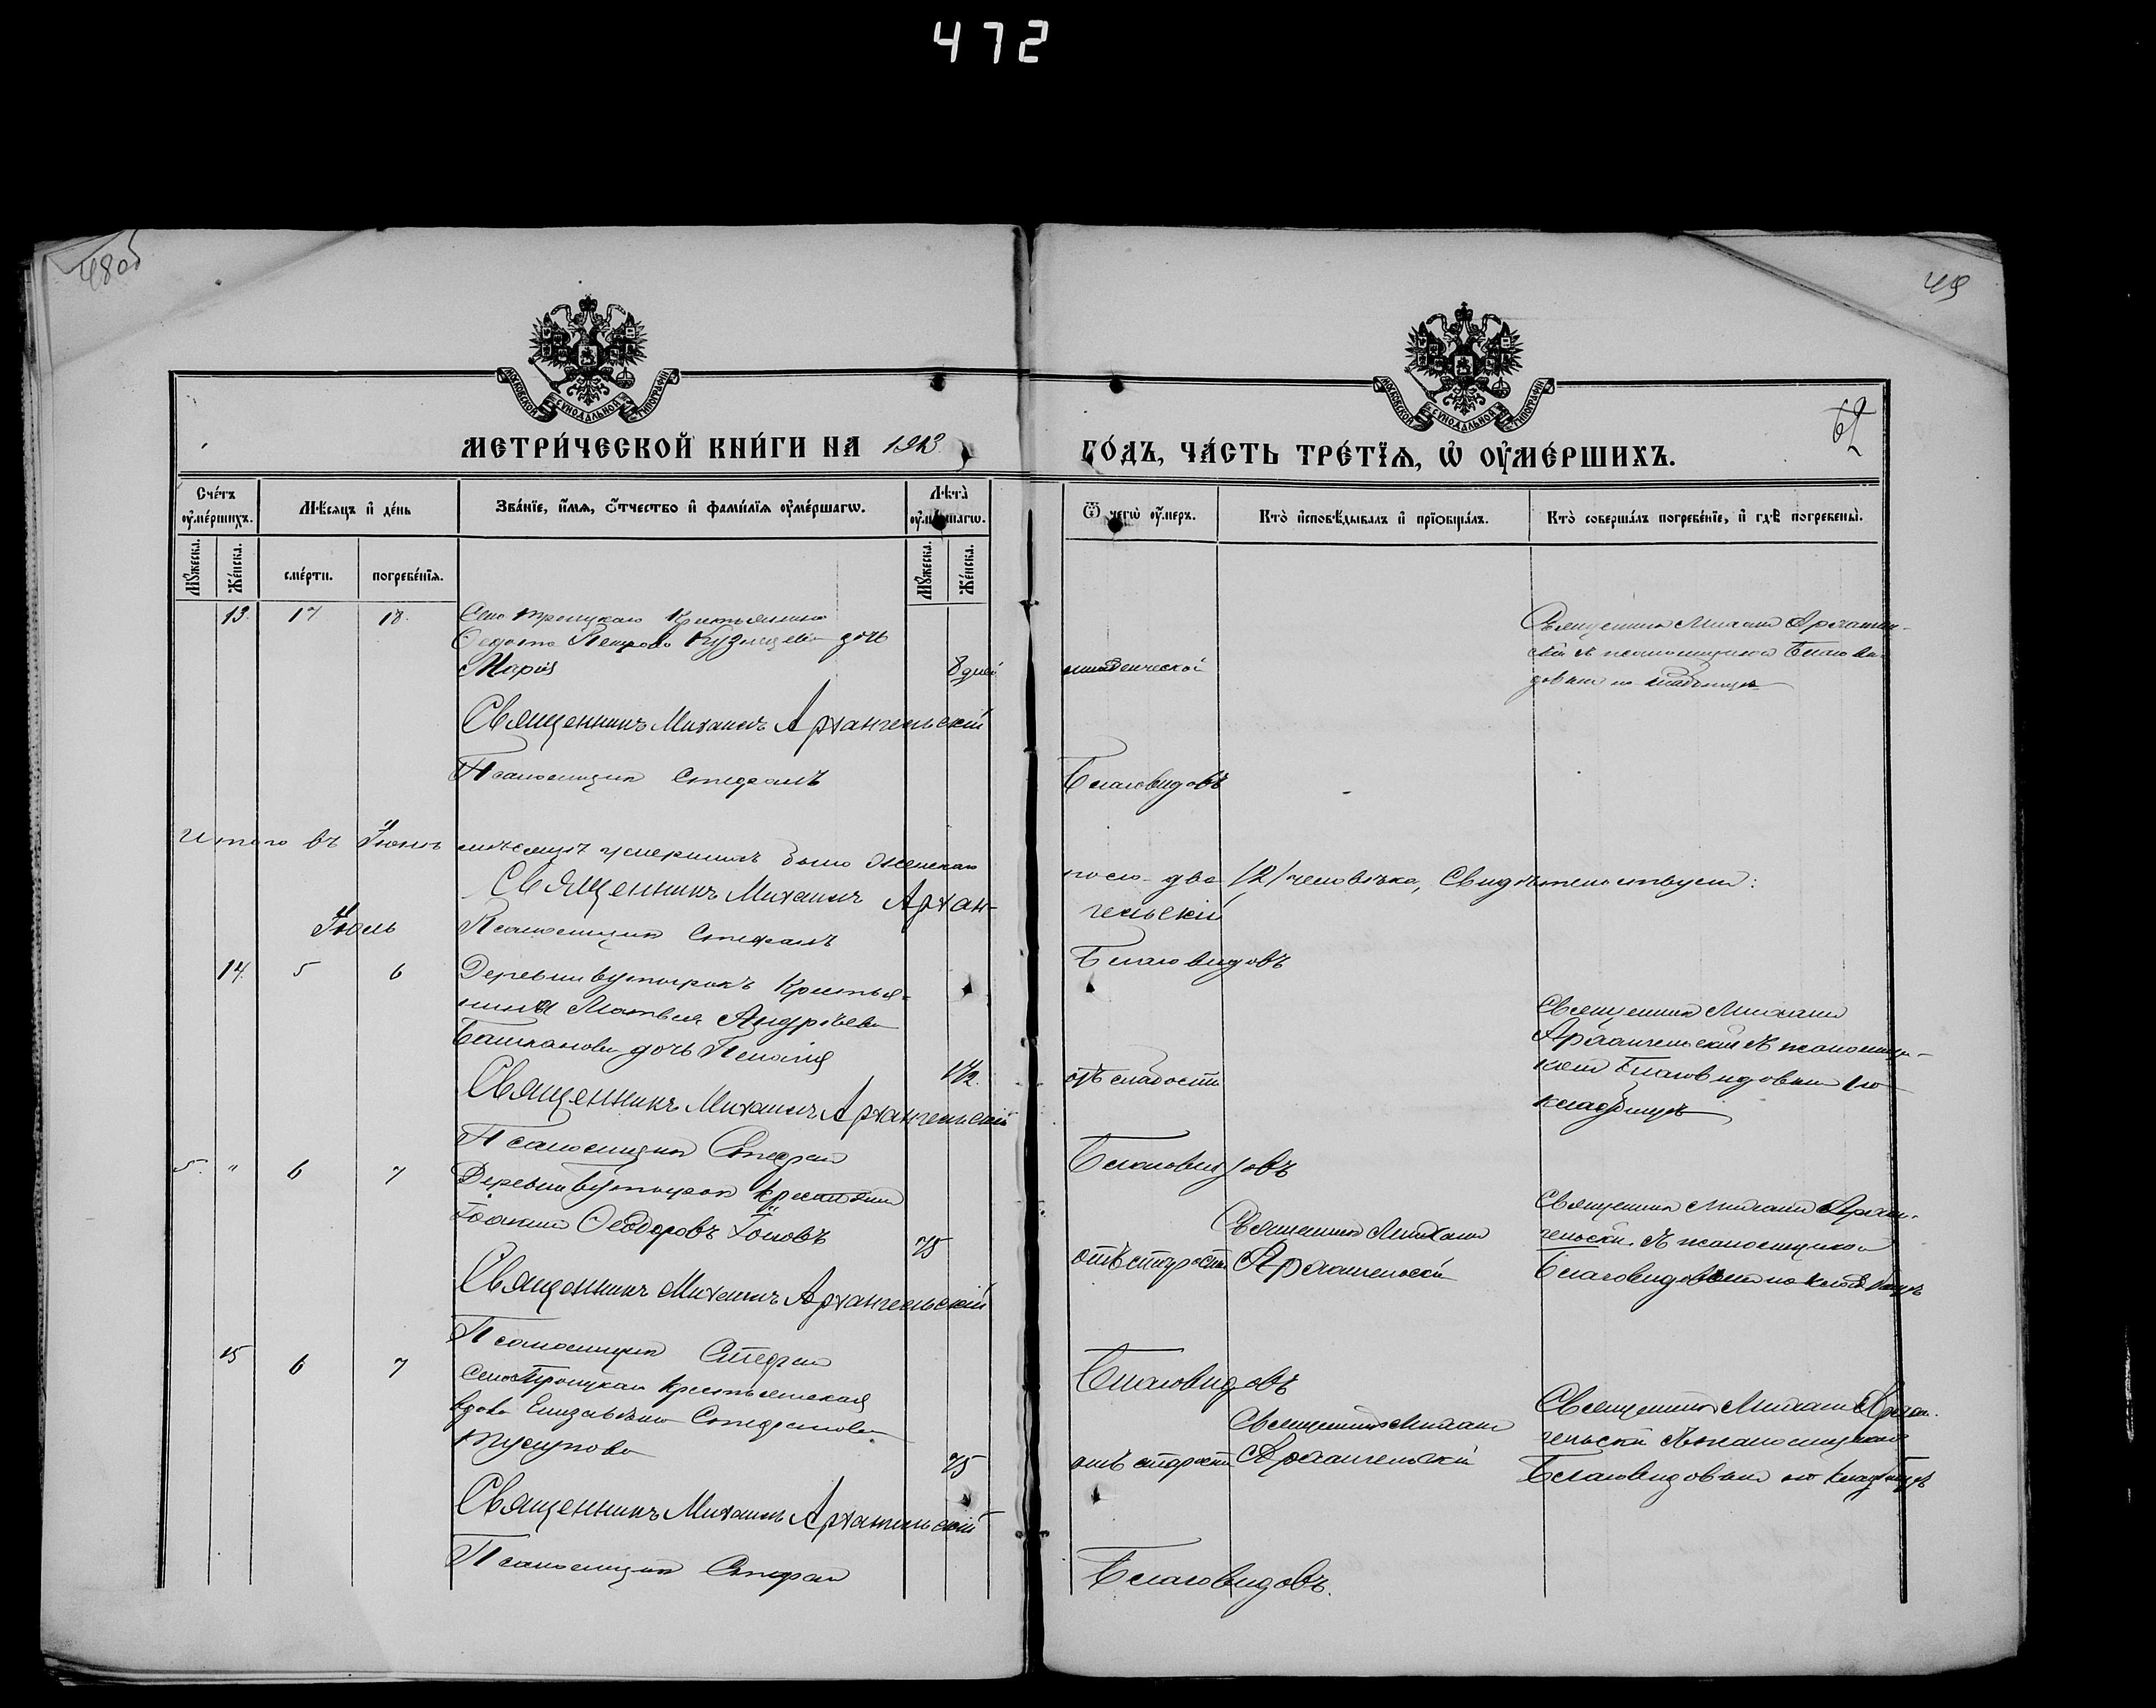 472
48об
49
МОСКОВСКОЙ СУНОДАЛЬНОЙ ТИПОГРАФІИ
МОСКОВСКОЙ СУНОДАЛЬНОЙ ТИПОГРАФІИ
62
МЕТРИ́ЧЕСКОЙ КНИ́ГИ НА 1913 ГО́ДЪ, ЧА́СТЬ ТРЕ́ТЇѦ, Ѡ҆ ОУ҆МЕ́РШИХЪ.
Сче́тъ оу҆ме́ршихъ.
Мѣ́сяцъ и҆ де́нь
Зва́нїе, и҆́мѧ, ѻ҆́тчество и҆ фами́лїѧ оу҆ме́ршагѡ.
Лѣта̀ оу҆ме́ршагѡ.
Ѿ чегѡ̀ оу҆́меръ.
Кто̀ и҆сповѣ́дывалъ и҆ прїѡбща́лъ.
Кто̀ соверша́лъ погребе́нїе, и҆ гдѣ̀ погребены̀.
Мꙋ́жеска.
Же́нска.
сме́рти.
погребе́нїѧ.
Мꙋ́жеска.
Же́нска.
13. 17 18. Села Троицкаго Крестьянина
Ѳедота Петрова Кузнецова дочь
Марія 8 дней младенческой
Священникъ Михаилъ Архангель-
скій съ псаломщикомъ Благови-
довымъ на кладбищѣ
Священникъ Михаилъ Архангельскій
Псаломщикъ Стефанъ Благовидовъ
Итого въ Іюнѣ мѣсяцѣ умершихъ было женскаго
пола два /2/ человѣка, Свидѣтельствуемъ:
Священникъ Михаилъ Архан-
гельскій
Іюль Псаломщикъ Стефанъ Благовидовъ
14. 5 6 Деревни Бутырокъ Крестья-
нина Матвея Андрѣева
Башканова дочь Пелагія 1 1/2. отъ слабости
Священникъ Михаилъ
Архангельскій съ псаломщи-
комъ Благовидовымъ на
кладбищѣ
Священникъ Михаилъ Архангельскій
Псаломщикъ Стефанъ Благовидовъ
5. " 6 7 Деревни Бутырокъ крестьянинъ
Іоакимъ Ѳеодоровъ 75 отъ старости
Священникъ Михаилъ
Архангельскій
Священникъ Михаилъ Архан-
гельскій съ псаломщикомъ
Благовидовымъ на кладбищѣ
Священникъ Михаилъ Архангельскій
Псаломщикъ Стефанъ Благовидовъ
15 6 7 Села Троицкаго крестьянская
вдова Елизавета Стефанова
75 отъ старости
Священникъ Михаилъ
Архангельскій
Священникъ Михаилъ Архан-
гельскій съ псаломщикомъ
Благовидовымъ на кладбищѣ
Священникъ Михаилъ Архангельскій
Псаломщикъ Стефанъ Благовидовъ.